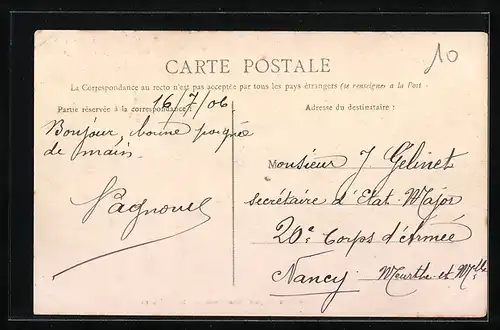 10
CARTE POSTALE
La Correspondance au recto n'est pas acceptée par tous les pays étrangers (se renseigner à la Poste)
Partie réservée à la correspondance :
Adresse du destinataire :
16/7/06
Bonjour, bonne poignée
de main.
Pagnouel
Monsieur J Gelinet
secrétaire d'Etat-Major
20e Corps d'Armée
Nancy Meurthe-et-Mlle